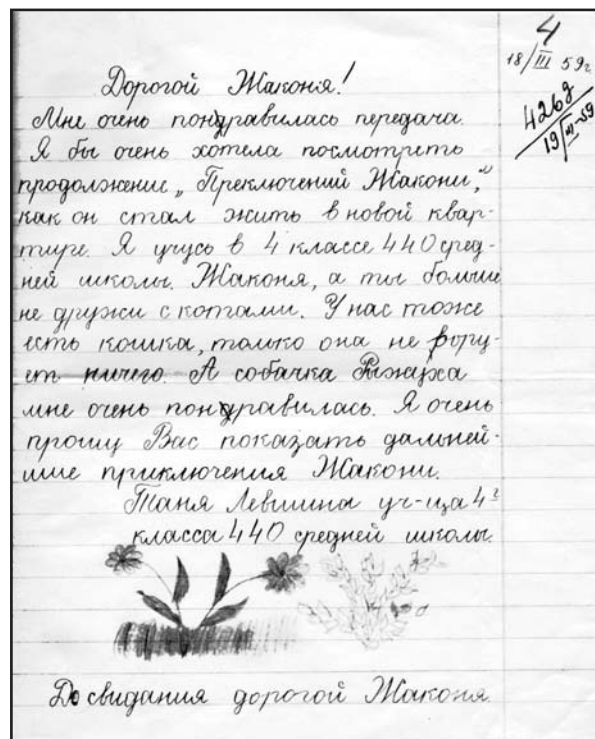 4
18/III 59г.
426д
19/III-59
Дорогой Жаконя!
Мне очень пондравилась передача.
Я бы очень хотела посмотреть
продолжение „Преключений Жакони,"
как он стал жить в новой квар-
тире. Я учусь в 4 классе 440 сред-
ней школы. Жаконя, а ты больше
не дружи с котами. У нас тоже
есть кошка, только она не вору-
ет ничего. А собачка Рыжуха
мне очень пондравилась. Я очень
прошу Вас показать дальней-
шие приключения Жакони.
Таня Левшина уч-ца 4²
класса 440 средней школы.
До свидания дорогой Жаконя.